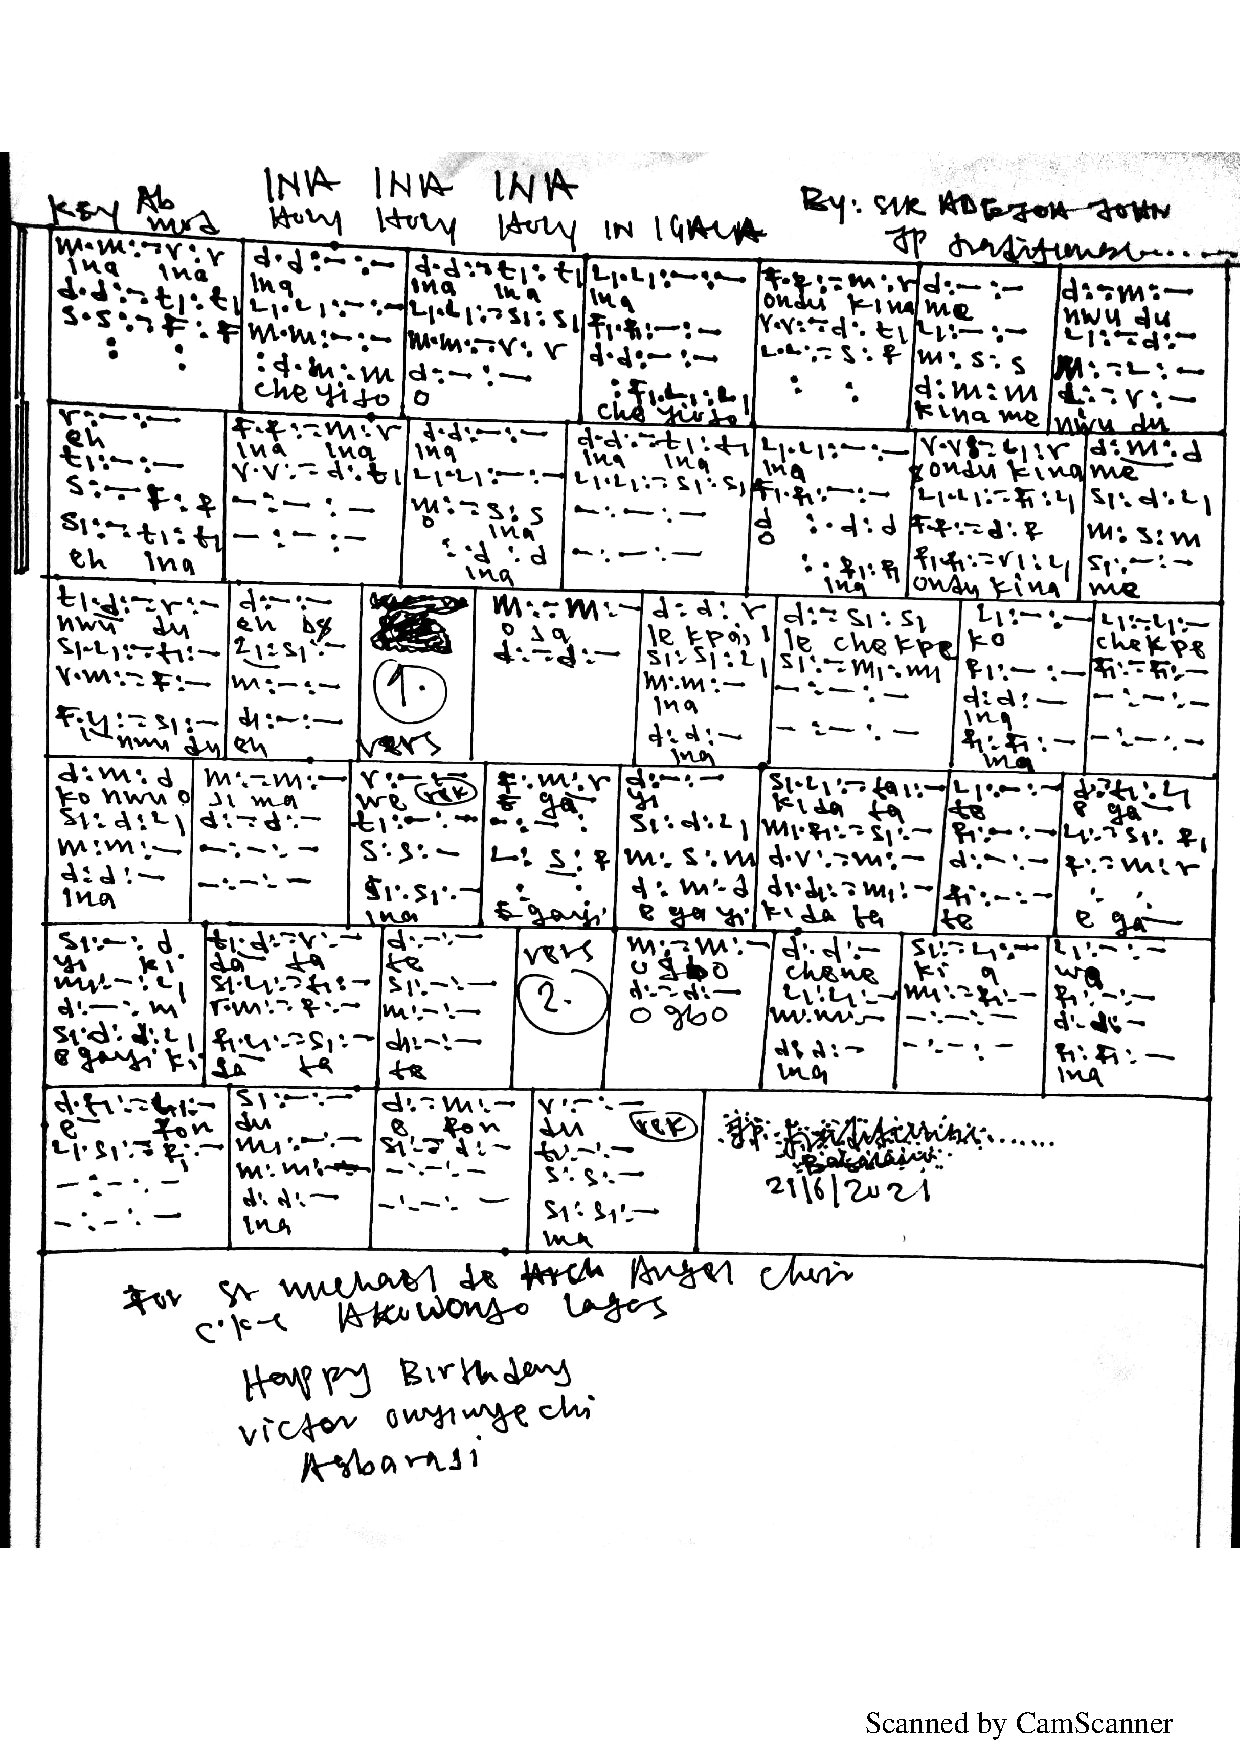 INA INA INA
Key Ab Holy Holy Holy IN IGALA By: SIR ADEJOH JOHN
mod
m.m:-:r:r d.d:-:- d.d:-t₁:t₁ L₁.L₁:-:- f.f:-m:r d:-:- d:-m:-
ina ina ina ina ina ina ondu kina me nwu du
d.d:-t₁:t₁ L₁.L₁:-:- L₁.L₁:-s₁:s₁ f₁.f₁:-:- r.r:-d:t₁ L₁:-:- L₁:-d:-
s.s:-f:f m.m:-:- m.m:-r:r d.d:-:- L.L:-s:f m:s:s m:-L:-
:d.m:m d:-:- :f₁.L₁:L₁ d:m:m d:-r:-
che yi jo o che yi jo kina me nwu du
r:-:- f.f:-m:r d.d:-:- d.d:-t₁:t₁ L₁.L₁:-:- r.r:-L₁:r d:m:d
eh ina ina ina ina ina ina ondu kina me
t₁:-:- r.r:-d:t₁ L₁.L₁:-:- L₁.L₁:-s₁:s₁ f₁.f₁:-:- L₁.L₁:-f₁:L₁ s₁:d:L₁
s:-f:f -:-:- m:-s:s -:-:- d :d:d f.f:-d:f m:s:m
o ina o
s₁:-t₁:t₁ -:-:- :d:d -:-:- :f₁:f₁ f₁.f₁:-r₁:L₁ s₁:-:-
eh ina ina ina ondu kina me
t₁:d:-r:- d:-:- m:-m:- d:d:r d:-s₁:s₁ L₁:-:- L₁:L₁:-
nwu du eh o sa le kpai le chekpe ko chekpe
s₁.L₁:-t₁:- L₁:s₁:- 1. d:-d:- s₁:s₁:L₁ s₁:-m₁:m₁ f₁:-:- f₁:-f₁:-
r.m:-f:- m:-:- m:m:- -:-:- d:d:- -:-:-
ina ina
f₁.L₁:-s₁:- d₁:-:- d:d:- -:-:- f₁:f₁:- -:-:-
nwu du eh vers ina ina
d:m:d m:-m:- r:-:- f:m:r d:-:- s₁.L₁:-ta₁:- L₁:-:- d:-t₁:L₁
ko nwu o ji ma we rek e ga yi ki da ta te e ga
s₁:d:L₁ d:-d:- t₁:-:- -:-:- s₁:d:L₁ m₁.f₁:-s₁:- f₁:-:- L₁:-s₁:f₁
m:m:- -:-:- s:s:- L:s:f m:s:m d.r:-m:- d:-:- f:-m:r
d:d:- -:-:- s₁:s₁:- d:m:d d₁.d₁:-m₁:- f₁:-:-
ina ina e gayi e ga yi ki da ta te e ga
s₁:-:d t₁.d:-r:- d:-:- vers m:-m:- d:d:- s₁:-L₁:- L₁:-:-
yi ki da ta te o gbo chene ki a wa
m₁:-:L₁ s₁.L₁:-t₁:- s₁:-:- 2. d:-d:- L₁:L₁:- m₁:-f₁:- f₁:-:-
d:-:m r.m:-f:- m:-:- o gbo m:m:- -:-:- d:d:-
s₁:d:d:L₁ f₁.L₁:-s₁:- d₁:-:- d:d:- -:-:- f₁:f₁:-
e gayi ki da ta te ina ina
d.t₁:-L₁:- s₁:-:- d:-m:- r:-:-
e fon du e fon du rek
L₁.s₁:-f₁:- m₁:-:- s₁:-d:- t₁:-:-
-:-:- m:m:- -:-:- s:s:-
-:-:- d:d:- -:-:- s₁:s₁:-
ina ina
21/6/2021
For st michael de Arch Angel choir
Akowonjo Lagos
Happy Birthday
victor onyinyechi
Agbaraji
Scanned by CamScanner